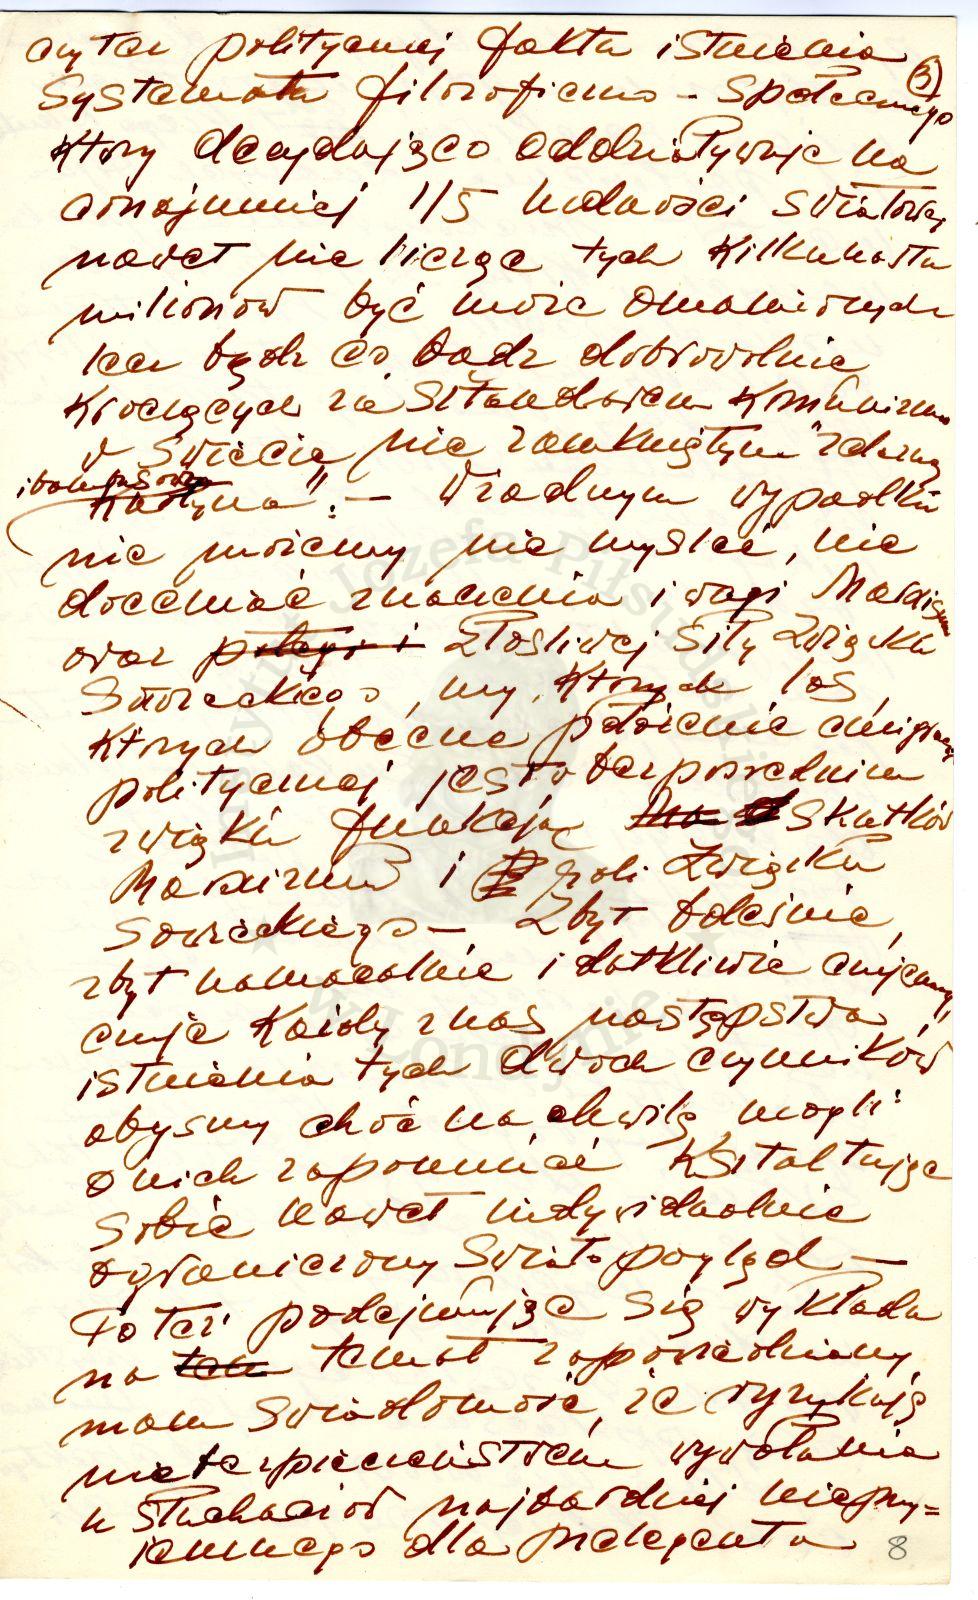 czyteż politycznej faktu istnienia
(3)
Systematu filozoficzno - Społecznego
Który decydująco oddziaływuje na
conajmniej 1/5 ludności Światowej
nawet nie licząc tych Kilkunastu
milionów być może Omamionych
lecz bądź co bądź dobrowolnie
Kroczących za Sztandarem Komunizmu
w Świecie nie zamkniętym "żelazną
i bambusową
Kurtyną". — W żadnym wypadku
nie możemy nie myśleć, nie
doceniać znaczenia i wagi Marxizmu
oraz potęgi i Złośliwej Siły Związku
Sowieckiego, my, Których los,
Których obecne położenie emigracji
politycznej jest w bezpośrednim
związku funkcją Skutków
Marxizmu i roli Związku
Sowieckiego — Zbyt boleśnie,
zbyt namacalnie i dotkliwie
czuje Każdy z nas następstwa
istnienia tych dwóch czynników
abyśmy choć na chwilę mogli
o nich zapomnieć Kształtując
Sobie nawet indywidualnie
Ograniczony Światopogląd —
To też podejmując się wykładu
na ten temat zapowiedziany
mam Świadomość, że ryzykuję
niebezpieczeństwem wywołania
u Słuchaczów najbardziej nieprzy=
jemnego dla prelegenta
8
Instytut Józefa Piłsudskiego
w Londynie